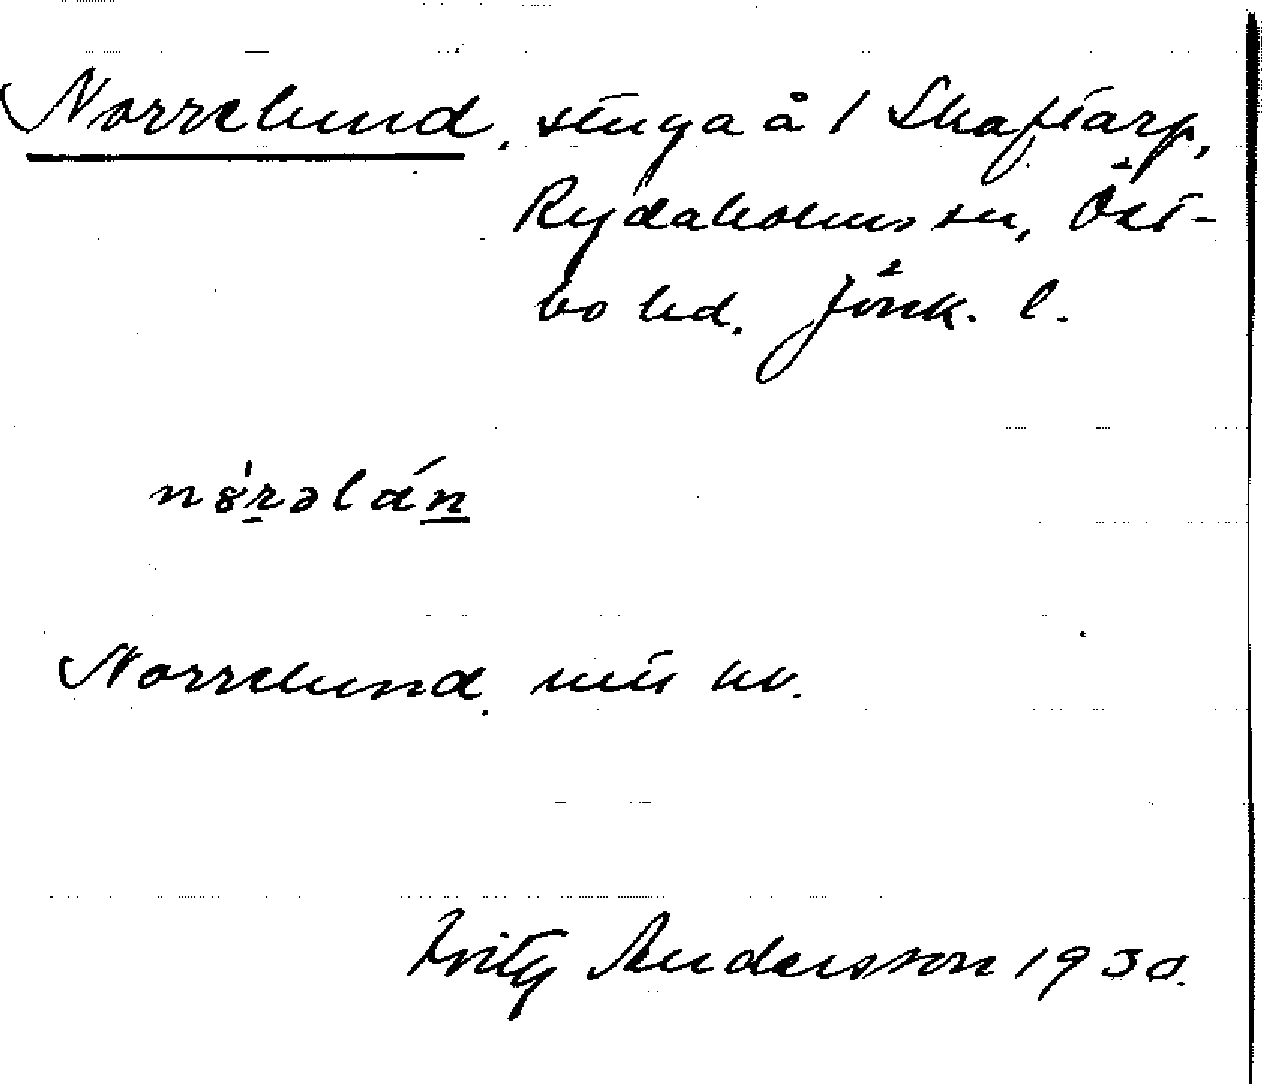 Norrelund, stuga å 1 Skaftarp,
Rydaholms sn, Öst-
bo hd. Jönk. l.
nȣ́rəlán
Norrelund
Fritz Andersson 1930.